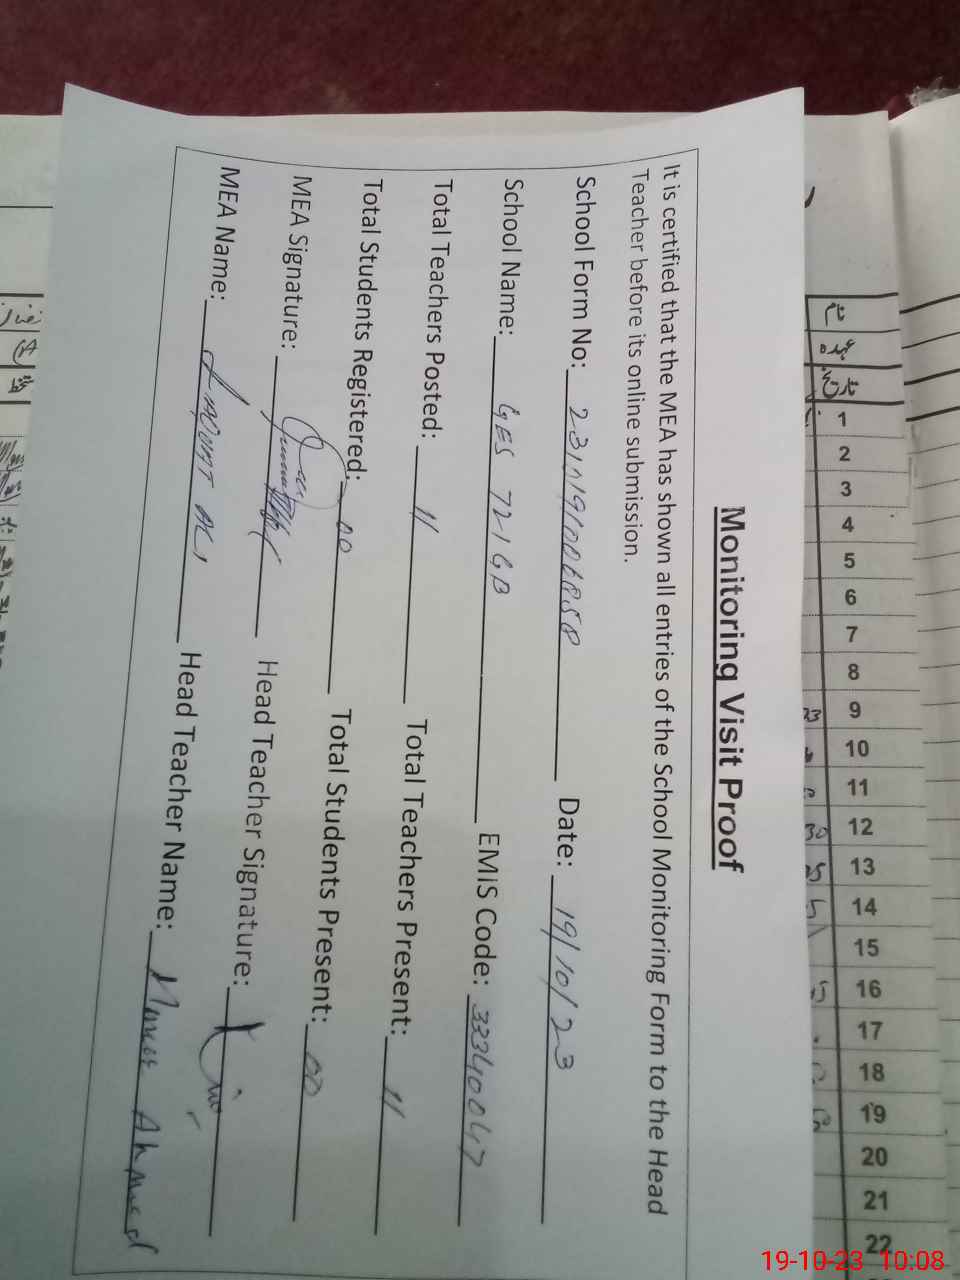 Monitoring Visit Proof
It is certified that the MEA has shown all entries of the School Monitoring Form to the Head
Teacher before its online submission.
School Form No: Date: 19/10/23
School Name: GES 721 GB EMIS Code: 33340047
Total Teachers Posted: 11 Total Teachers Present: 11
Total Students Registered: 00 Total Students Present: 00
MEA Signature: Head Teacher Signature:
MEA Name: Head Teacher Name: Ahmed
1
2
3
4
5
6
7
8
9
10
11
12
13
14
15
16
17
18
19
20
21
22
19-10-23 10:08